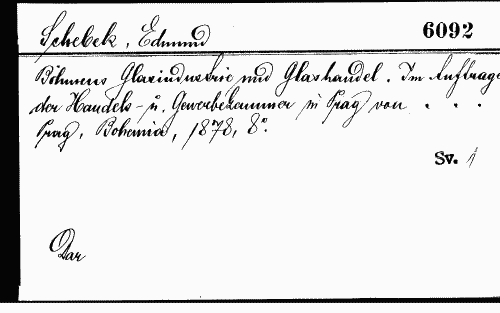 Schebek, Edmund
6092
Böhmens Glasindustrie und Glashandel. Im Auftrage
der Handels- u. Gewerbekammer in Prag von . . .
Prag, Bohemia, 1878, 8°.
Sv. 1
Dar